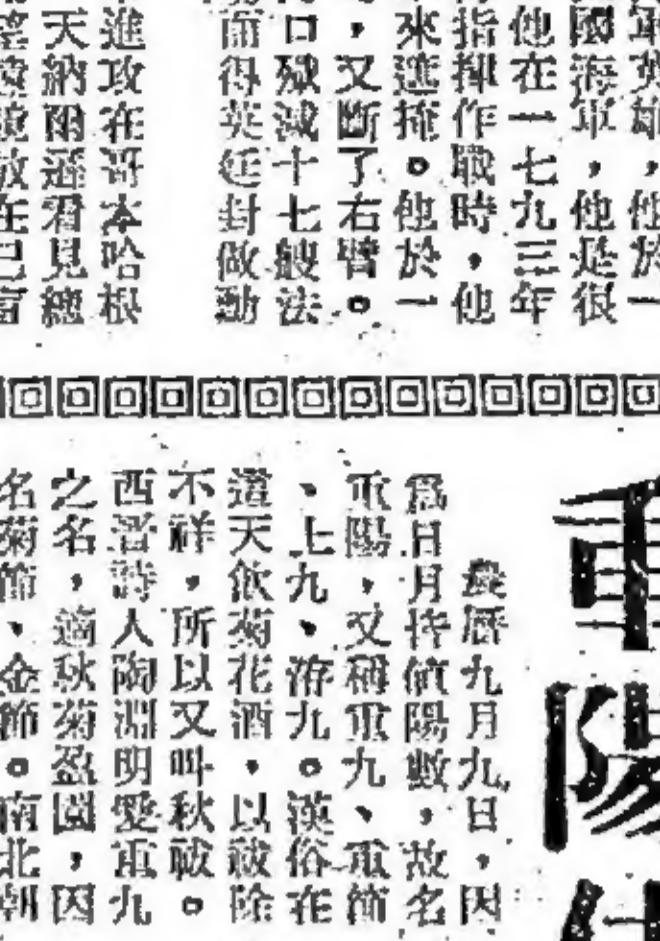 軍英雄，他於一
國海軍，他是很
他在一七九三年
指揮作戰時，他
來遮掩。他於一
，又斷了右臂。
口殲滅十七艘法
而得英廷封做勳
進攻在哥本哈根
天納爾遜看見總
放在已盲
重陽
農曆九月九日，因
爲日月皆值陽數，故名
重陽，又稱重九、重節
、上九、游九。漢俗在
這天飲菊花酒，以祓除
不祥，所以又叫秋祓。
西晉詩人陶淵明愛重九
之名，適秋菊盈園，因
名菊節、金節。南北朝